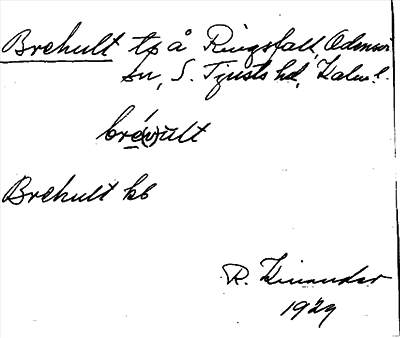 Brehult tp å Ringsfall, Odensvi
sn, S. Tjusts hd, Kalm. l.
bré(v)ult
Brehult kb
R. Kinander
1929